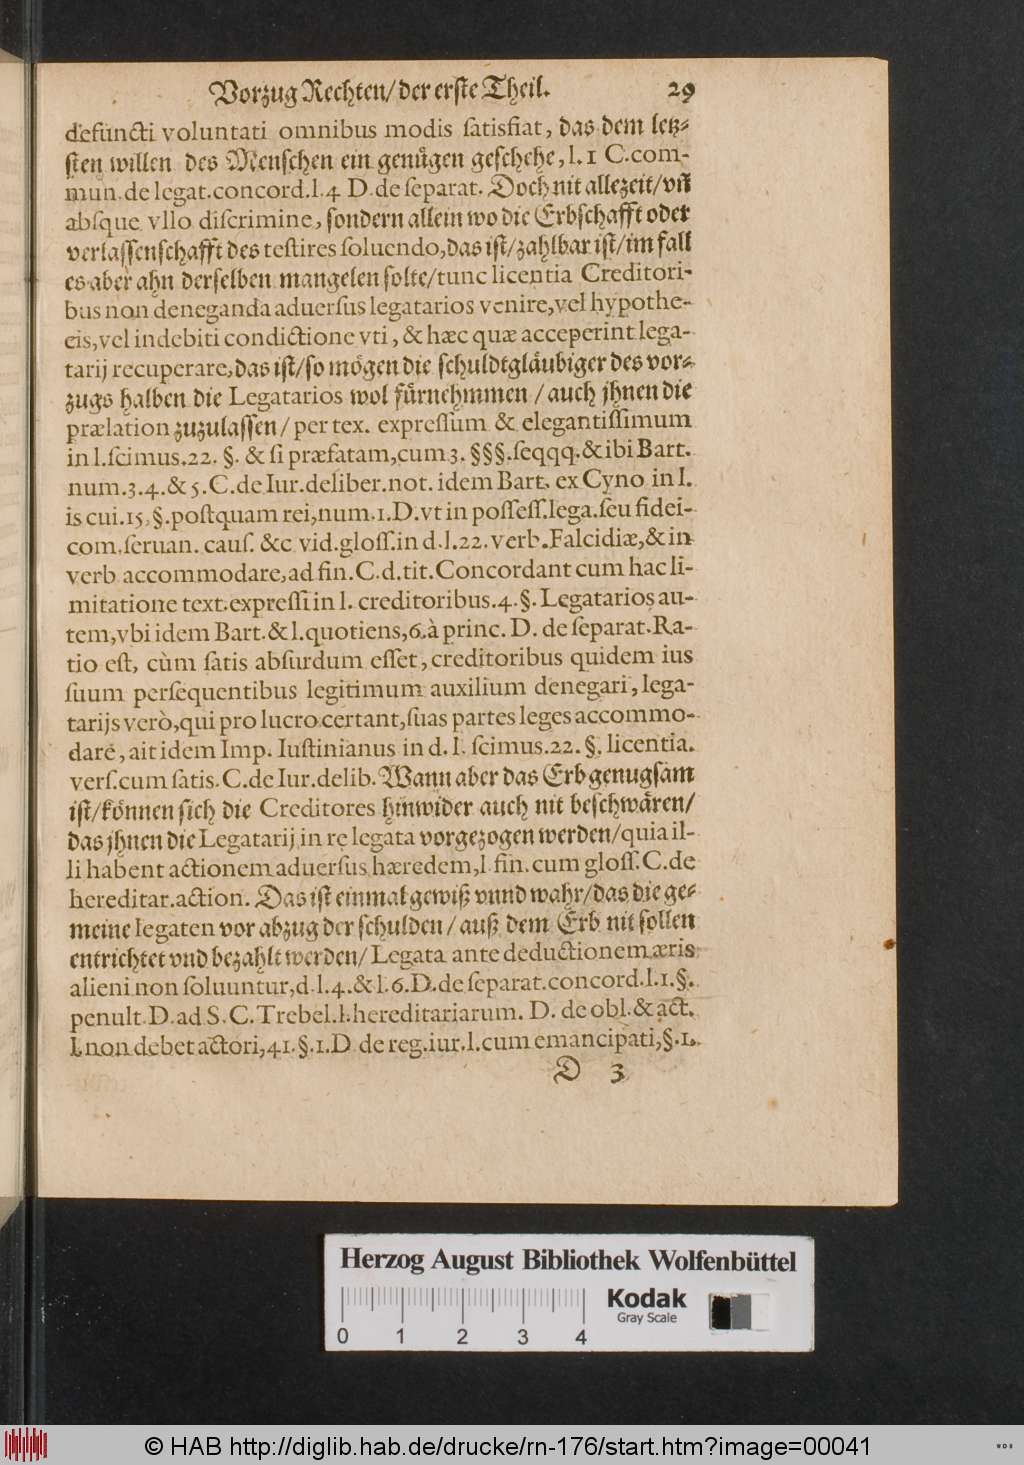 Vorzug Rechten/ der erste Theil. 29
defuncti voluntati omnibus modis ſatisfiat, das dem letz-
ſten willen des Menſchen ein genuͤgen geſchehe, l. 1 C. com-
mun. de legat. concord. l. 4 D. de ſeparat. Doch nit allezeit/ vñ
abſque vllo diſcrimine, ſondern allein wo die Erbſchafft oder
verlaſſenſchafft des teſtires ſoluendo, das iſt/ zahlbar iſt/ im fall
es aber ahn derſelben mangelen ſolte/ tunc licentia Creditori-
bus non deneganda aduerſus legatarios venire, vel hypothe-
cis, vel indebiti condictione vti, & hæc quæ acceperint lega-
tarij recuperare, das iſt/ ſo moͤgen die ſchuldtglaͤubiger des vor-
zugs halben die Legatarios wol fuͤrnehmmen / auch jhnen die
prælation zuzulaſſen/ per tex. expreſſum & elegantiſſimum
in l. ſcimus. 22. §. & ſi præfatam, cum 3. §§§. ſeqqq. & ibi Bart.
num. 3. 4. & 5. C. de Iur. deliber. not. idem Bart. ex Cyno in l.
is cui. 15. §. poſtquam rei, num. 1. D. vt in poſſeſſ. lega. ſeu fidei-
com. ſeruan. cauſ. &c vid. gloſſ. in d. l. 22. verb. Falcidiæ, & in
verb accommodare, ad fin. C. d. tit. Concordant cum hac li-
mitatione text. expreſſi in l. creditoribus. 4. §. Legatarios au-
tem, vbi idem Bart. & l. quotiens, 6. à princ. D. de ſeparat. Ra-
tio eſt, cùm ſatis abſurdum eſſet, creditoribus quidem ius
ſuum perſequentibus legitimum auxilium denegari, lega-
tarijs verò, qui pro lucro certant, ſuas partes leges accommo-
dare, ait idem Imp. Iuſtinianus in d. l. ſcimus. 22. §. licentia.
verſ. cum ſatis. C. de Iur. delib. Wann aber das Erb genugſam
iſt/ koͤnnen ſich die Creditores hinwider auch nit beſchwaͤren/
das jhnen die Legatarij in re legata vorgezogen werden/ quia il-
li habent actionem aduerſus hæredem, l. fin. cum gloſſ. C. de
hereditar. action. Das iſt einmal gewiß vnnd wahr/ das die ge-
meine legaten vor abzug der ſchulden/ auß dem Erb nit ſollen
entrichtet vnd bezahlt werden/ Legata ante deductionem æris
alieni non ſoluuntur, d. l. 4. & l. 6. D. de ſeparat. concord. l. 1. §.
penult. D. ad S. C. Trebel. l. hereditariarum. D. de obl. & act.
l. non debet actori, 41. §. 1. D de reg. iur. l. cum emancipati, §. 1.
D 3
Herzog August Bibliothek Wolfenbüttel
Kodak
Gray Scale
0 1 2 3 4
© HAB http://diglib.hab.de/drucke/rn-176/start.htm?image=00041